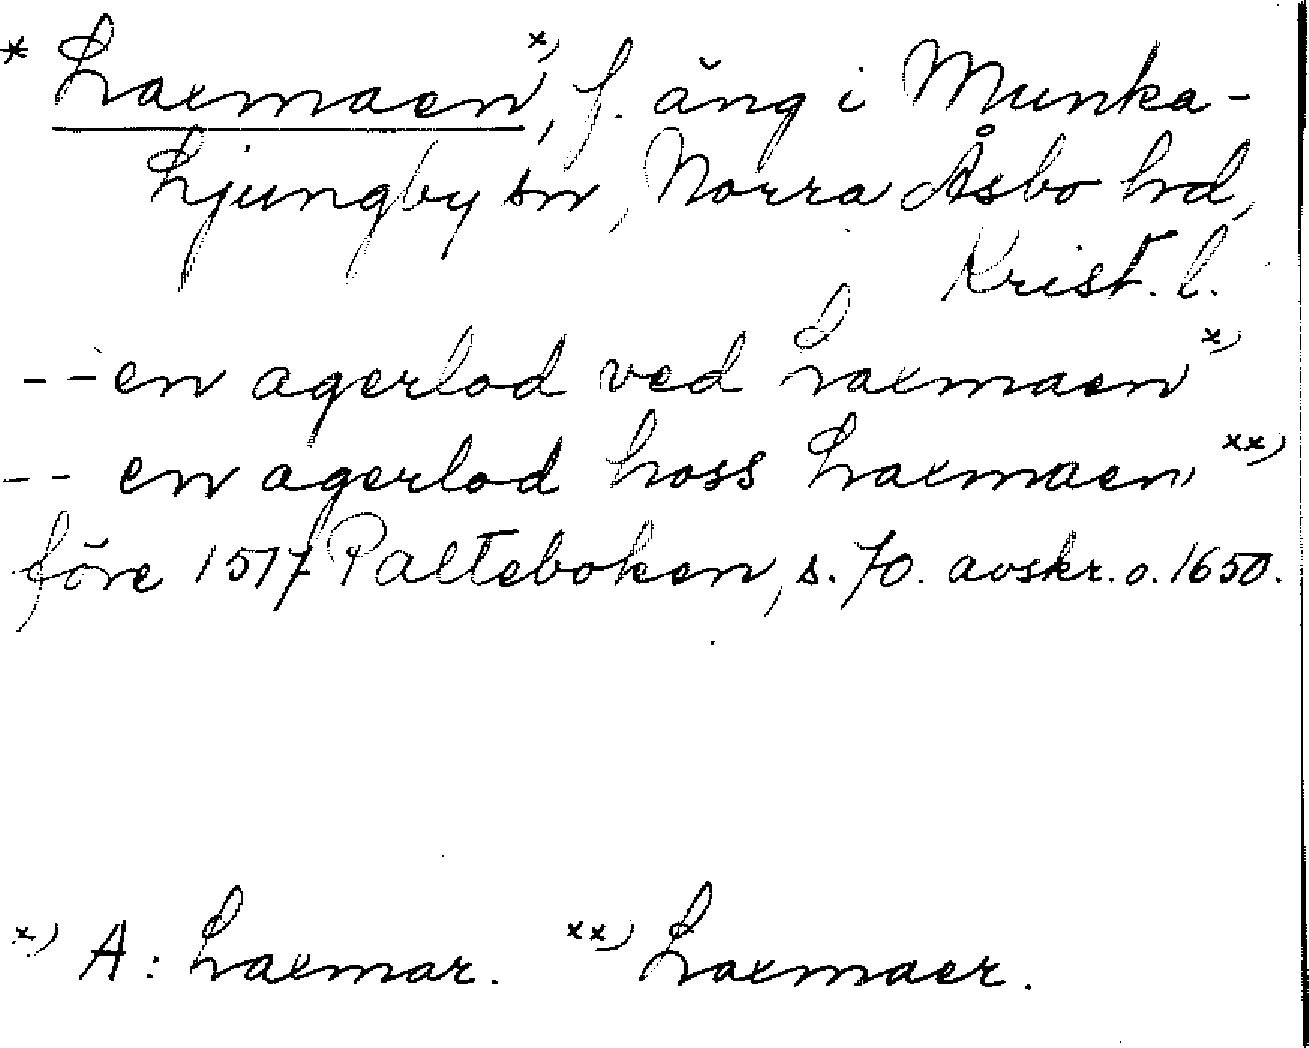 * Laxmaen x), f. äng i Munka-
Ljungby sn, Norra Åsbo hd,
Krist. l.
-- en agerlod ved Laxmaen x)
-- en agerlod hoss Laxmaen xx)
före 1517 Palteboken, s. 70. avskr. o. 1650.
x) A: Laxmar. xx) Laxmaer.